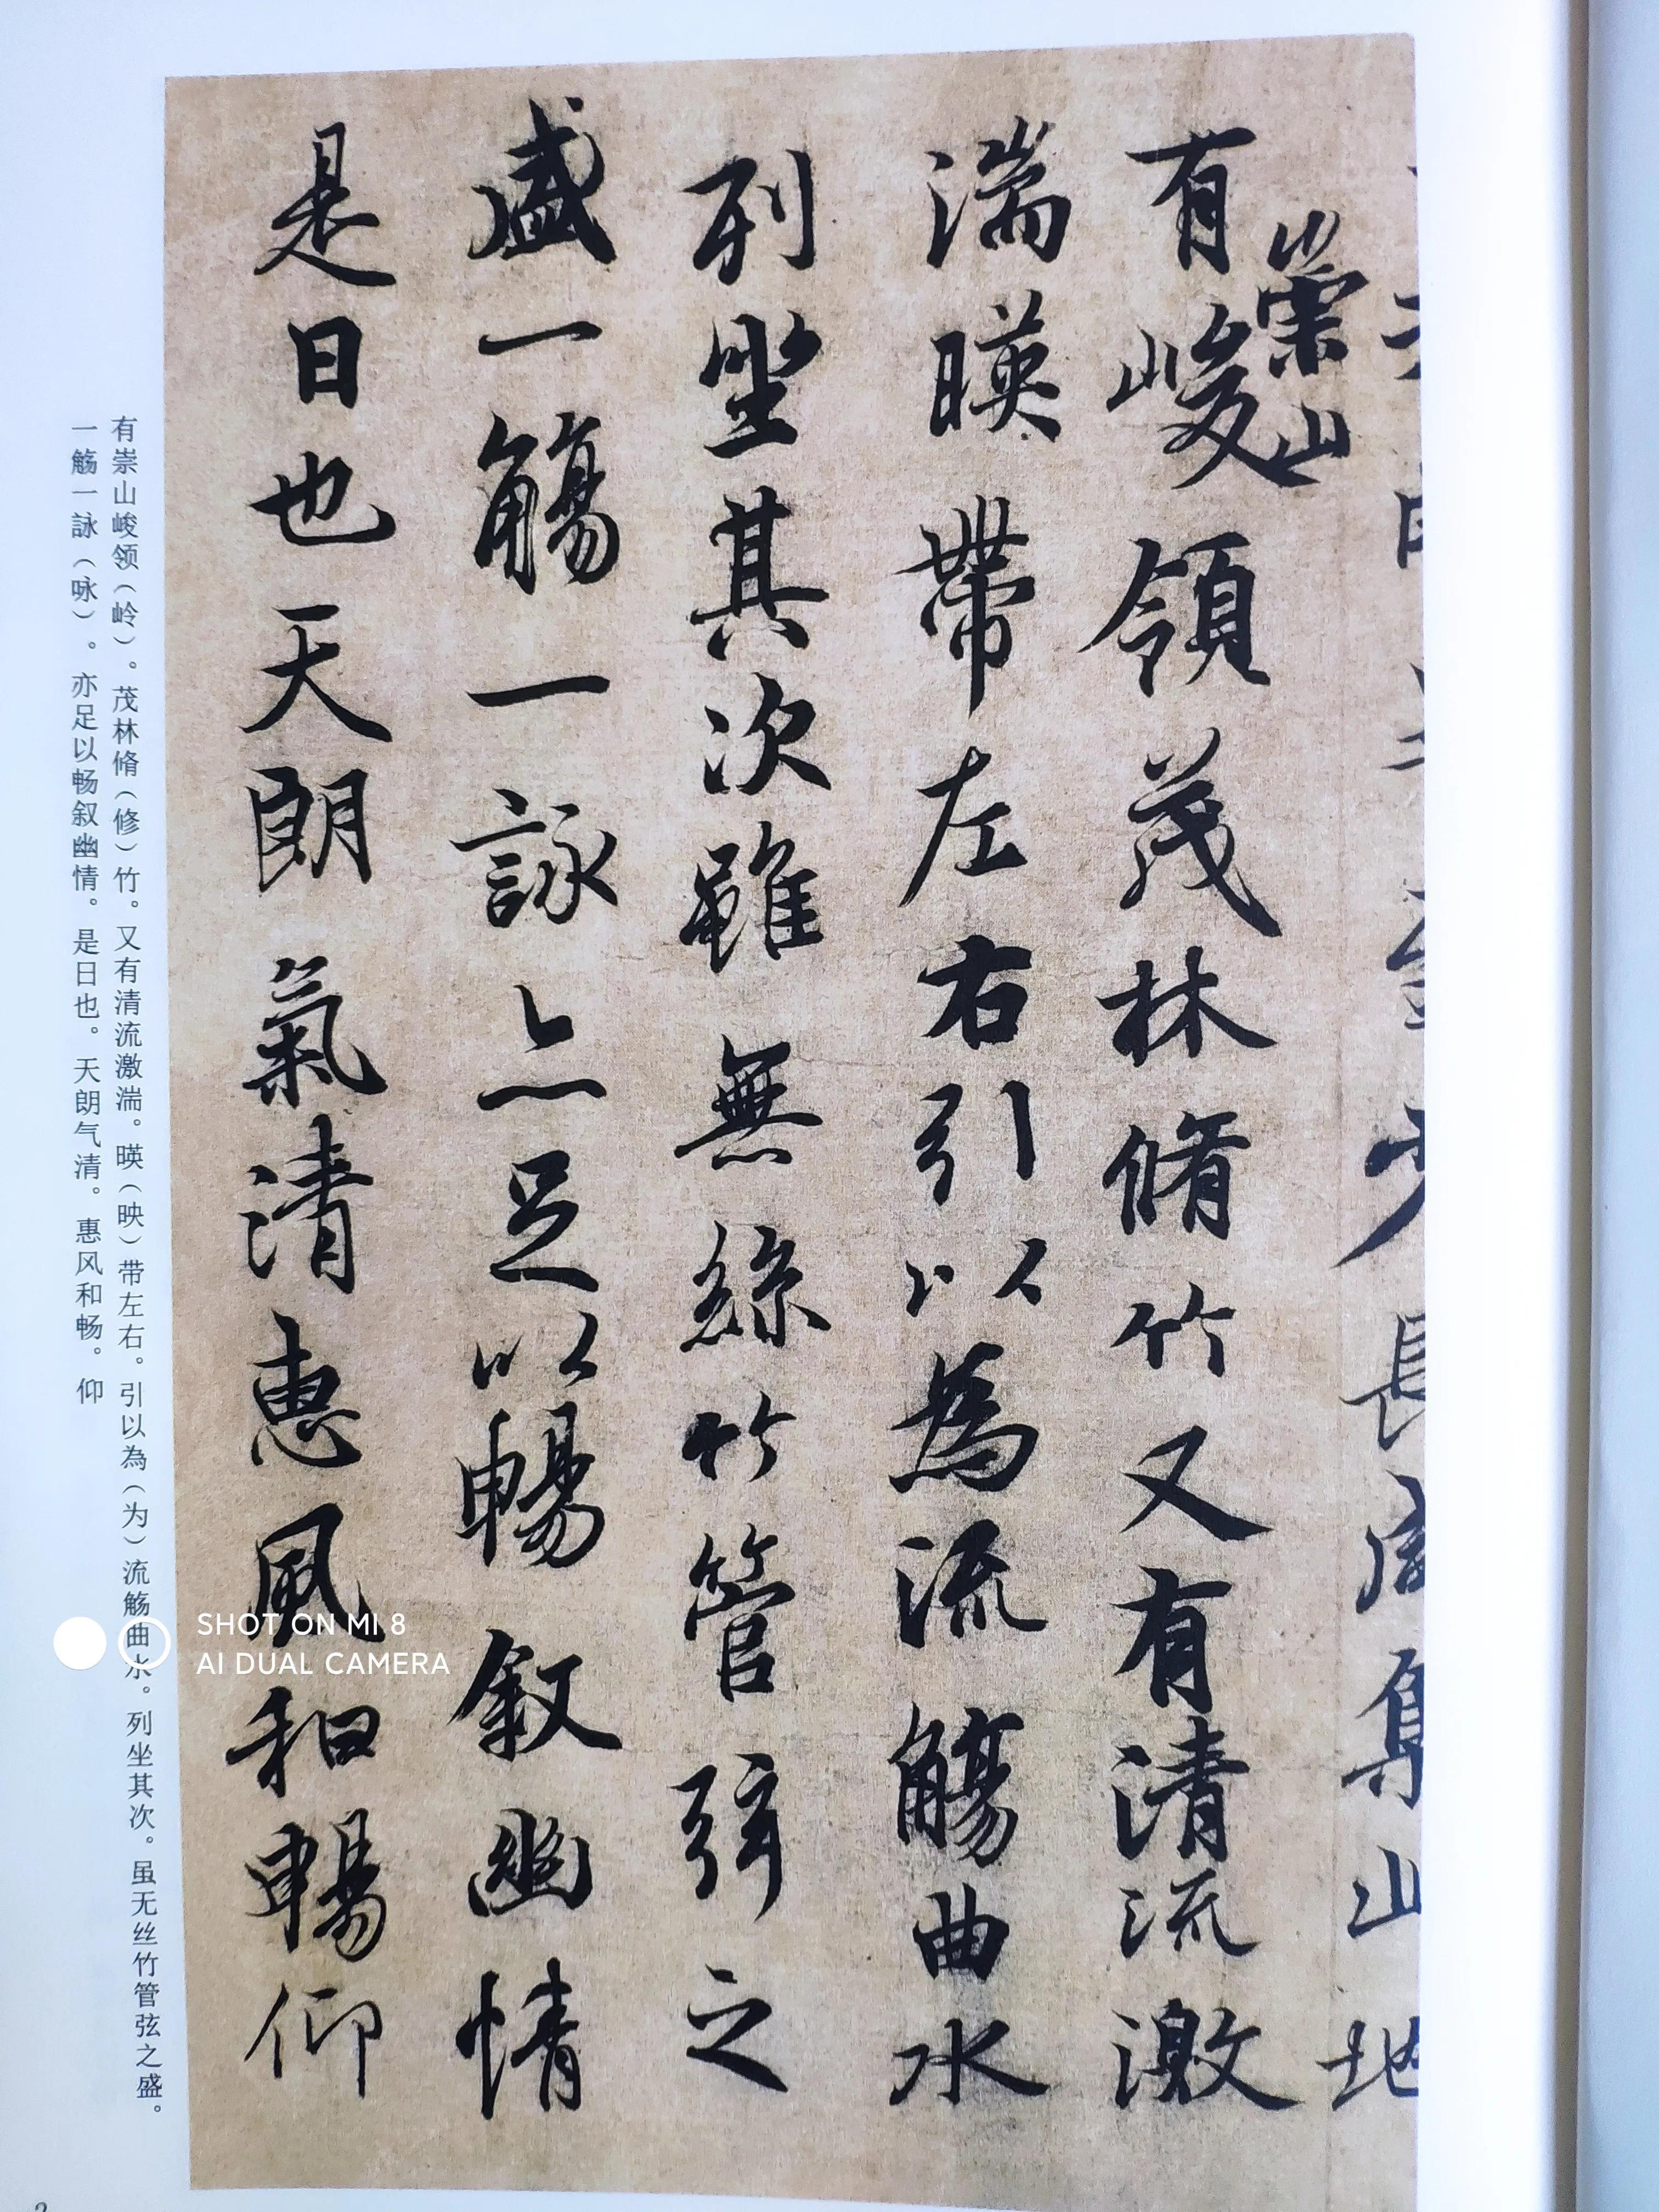 長咸集山地
崇山
有峻領茂林脩竹又有清流激
湍暎帶左右引以為流觴曲水
列坐其次雖無絲竹管弦之
盛一觴一詠亦足以暢敘幽情
是日也天朗氣清惠風和暢仰
有崇山峻领（岭）。茂林脩（修）竹。又有清流激湍。暎（映）带左右。引以為（为）流觞曲水。列坐其次。虽无丝竹管弦之盛。
一觞一詠（咏）。亦足以畅叙幽情。是日也。天朗气清。惠风和畅。仰
SHOT ON MI 8
AI DUAL CAMERA
2